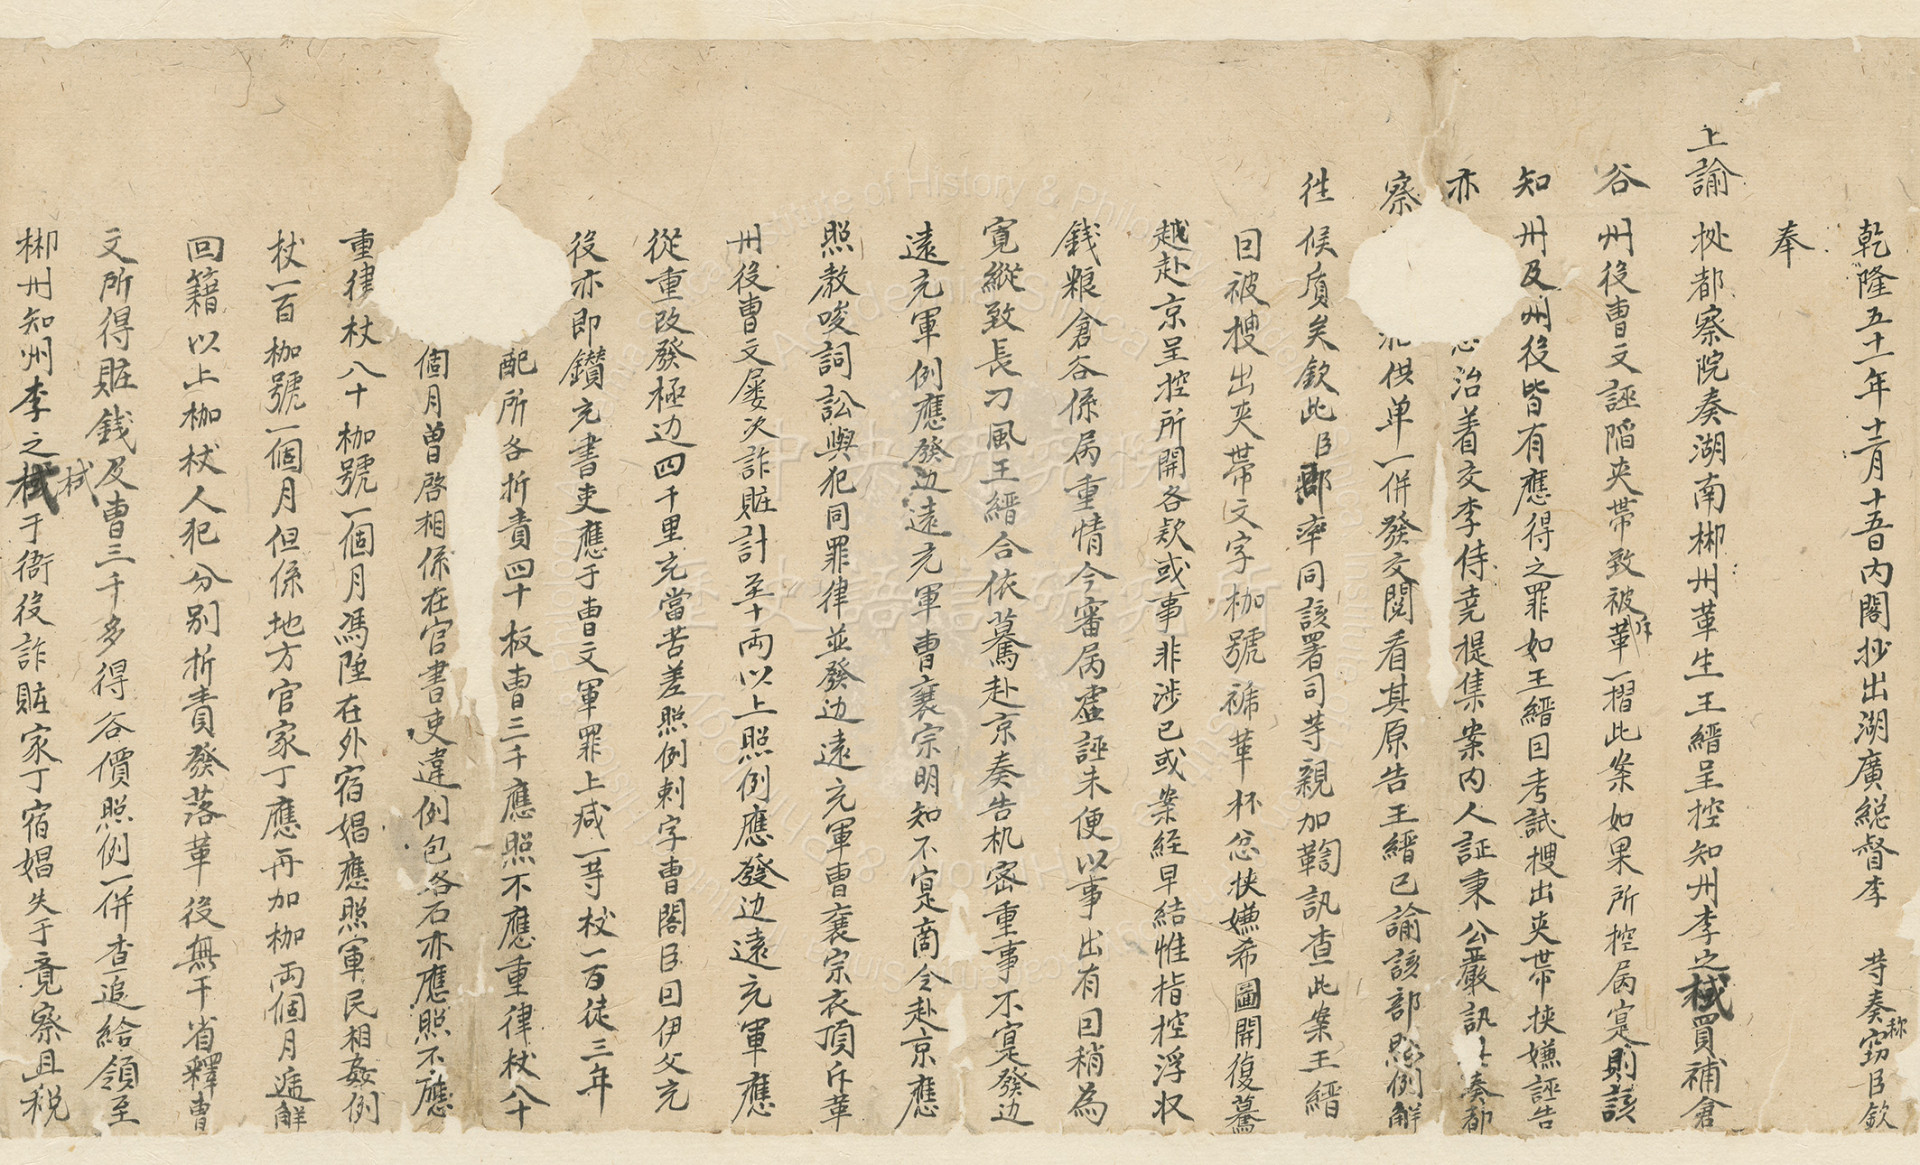 乾隆五十一年十二月十五日內閣抄出湖廣総督李　等奏称窃臣欽
奉
上諭拠都察院奏湖南郴州革生王縉呈控知州李之栻買補倉
谷州役曹文誣陷夾帶致被斥革一摺此案如果所控属寔則該
知州及州役皆有應得之罪如王縉因考試搜出夾帶挾嫌誣告
亦　治着交李侍堯提集案内人証秉公嚴訊　奏都
察　供单一併發交閱看其原告王縉已諭該部照例解
徃候質矣欽此臣　率同該署司等親加鞫訊查此案王縉
因被搜出夾帶文字枷號褫革杯忿挟嫌希圖開復驀
越赴京呈控所開各款或事非涉已或案経早結惟指控浮収
銭粮倉谷係属重情今審属虚誣未便以事出有因稍為
寬縱致長刁風王縉合依驀越赴京奏告机密重事不寔發边
遠充軍例應發边遠充軍曹襄宗明知不寔商令赴京應
照教唆詞訟與犯同罪律並發边遠充軍曹襄宗衣頂斥革
州役曹文屡次詐賍計至十両以上照例應發边遠充軍應
從重改發極边四千里充當苦差照例刺字曹閣臣因伊父充
役亦即鑚充書吏應于曹文軍罪上减一等杖一百徒三年
配所各折責四十板曹三千應照不應重律杖八十
個月曽啓相係在官書吏違例包　各石亦應照不應
重律杖八十枷號一個月馮陞在外宿娼應照軍民相姦例
杖一百枷號一個月但係地方官家丁應再加枷両個月遞解
回籍以上枷杖人犯分别折責發落革役無干省釋曹
文所得賍銭及曹三千多得谷價照例一併查追給領至
郴州知州李之栻于衙役詐賍家丁宿娼失于覺察且税
栻